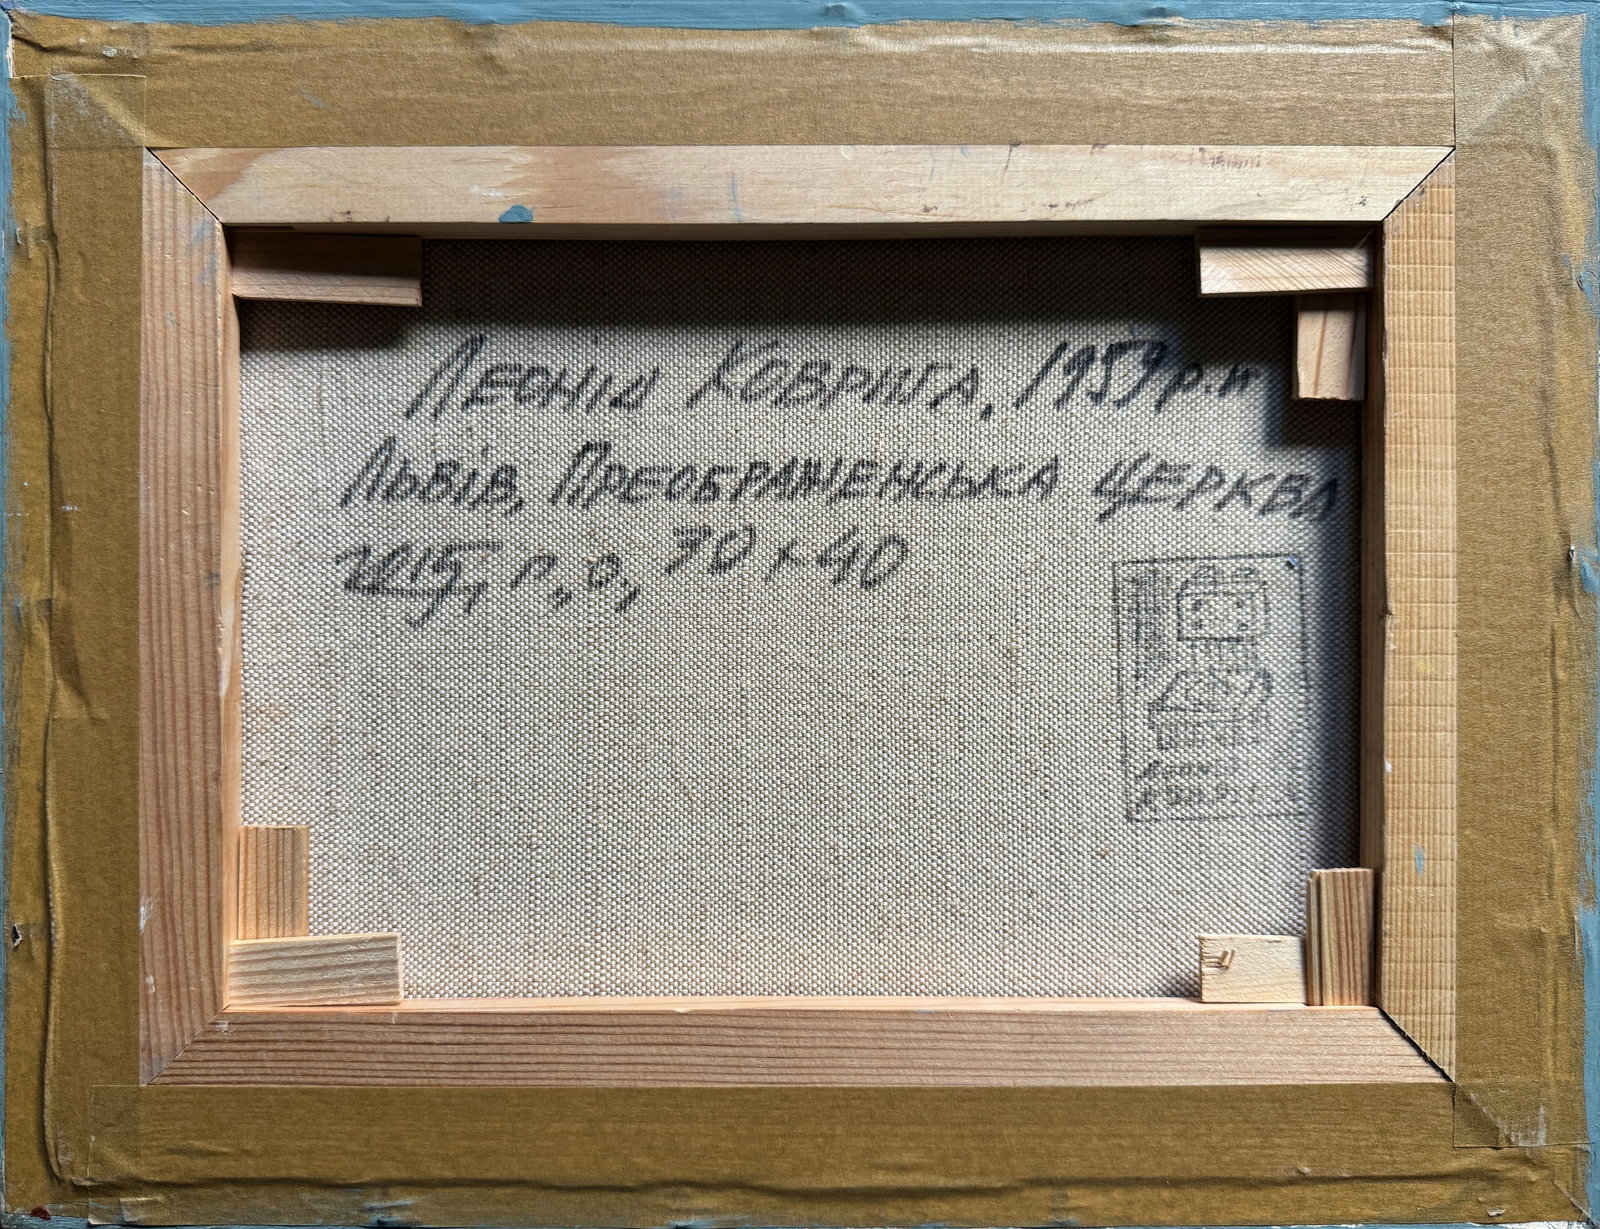 Леонід Коврига, 1959 р.н
Львів, Преображенська церква
2015, п., о, 30 х 40